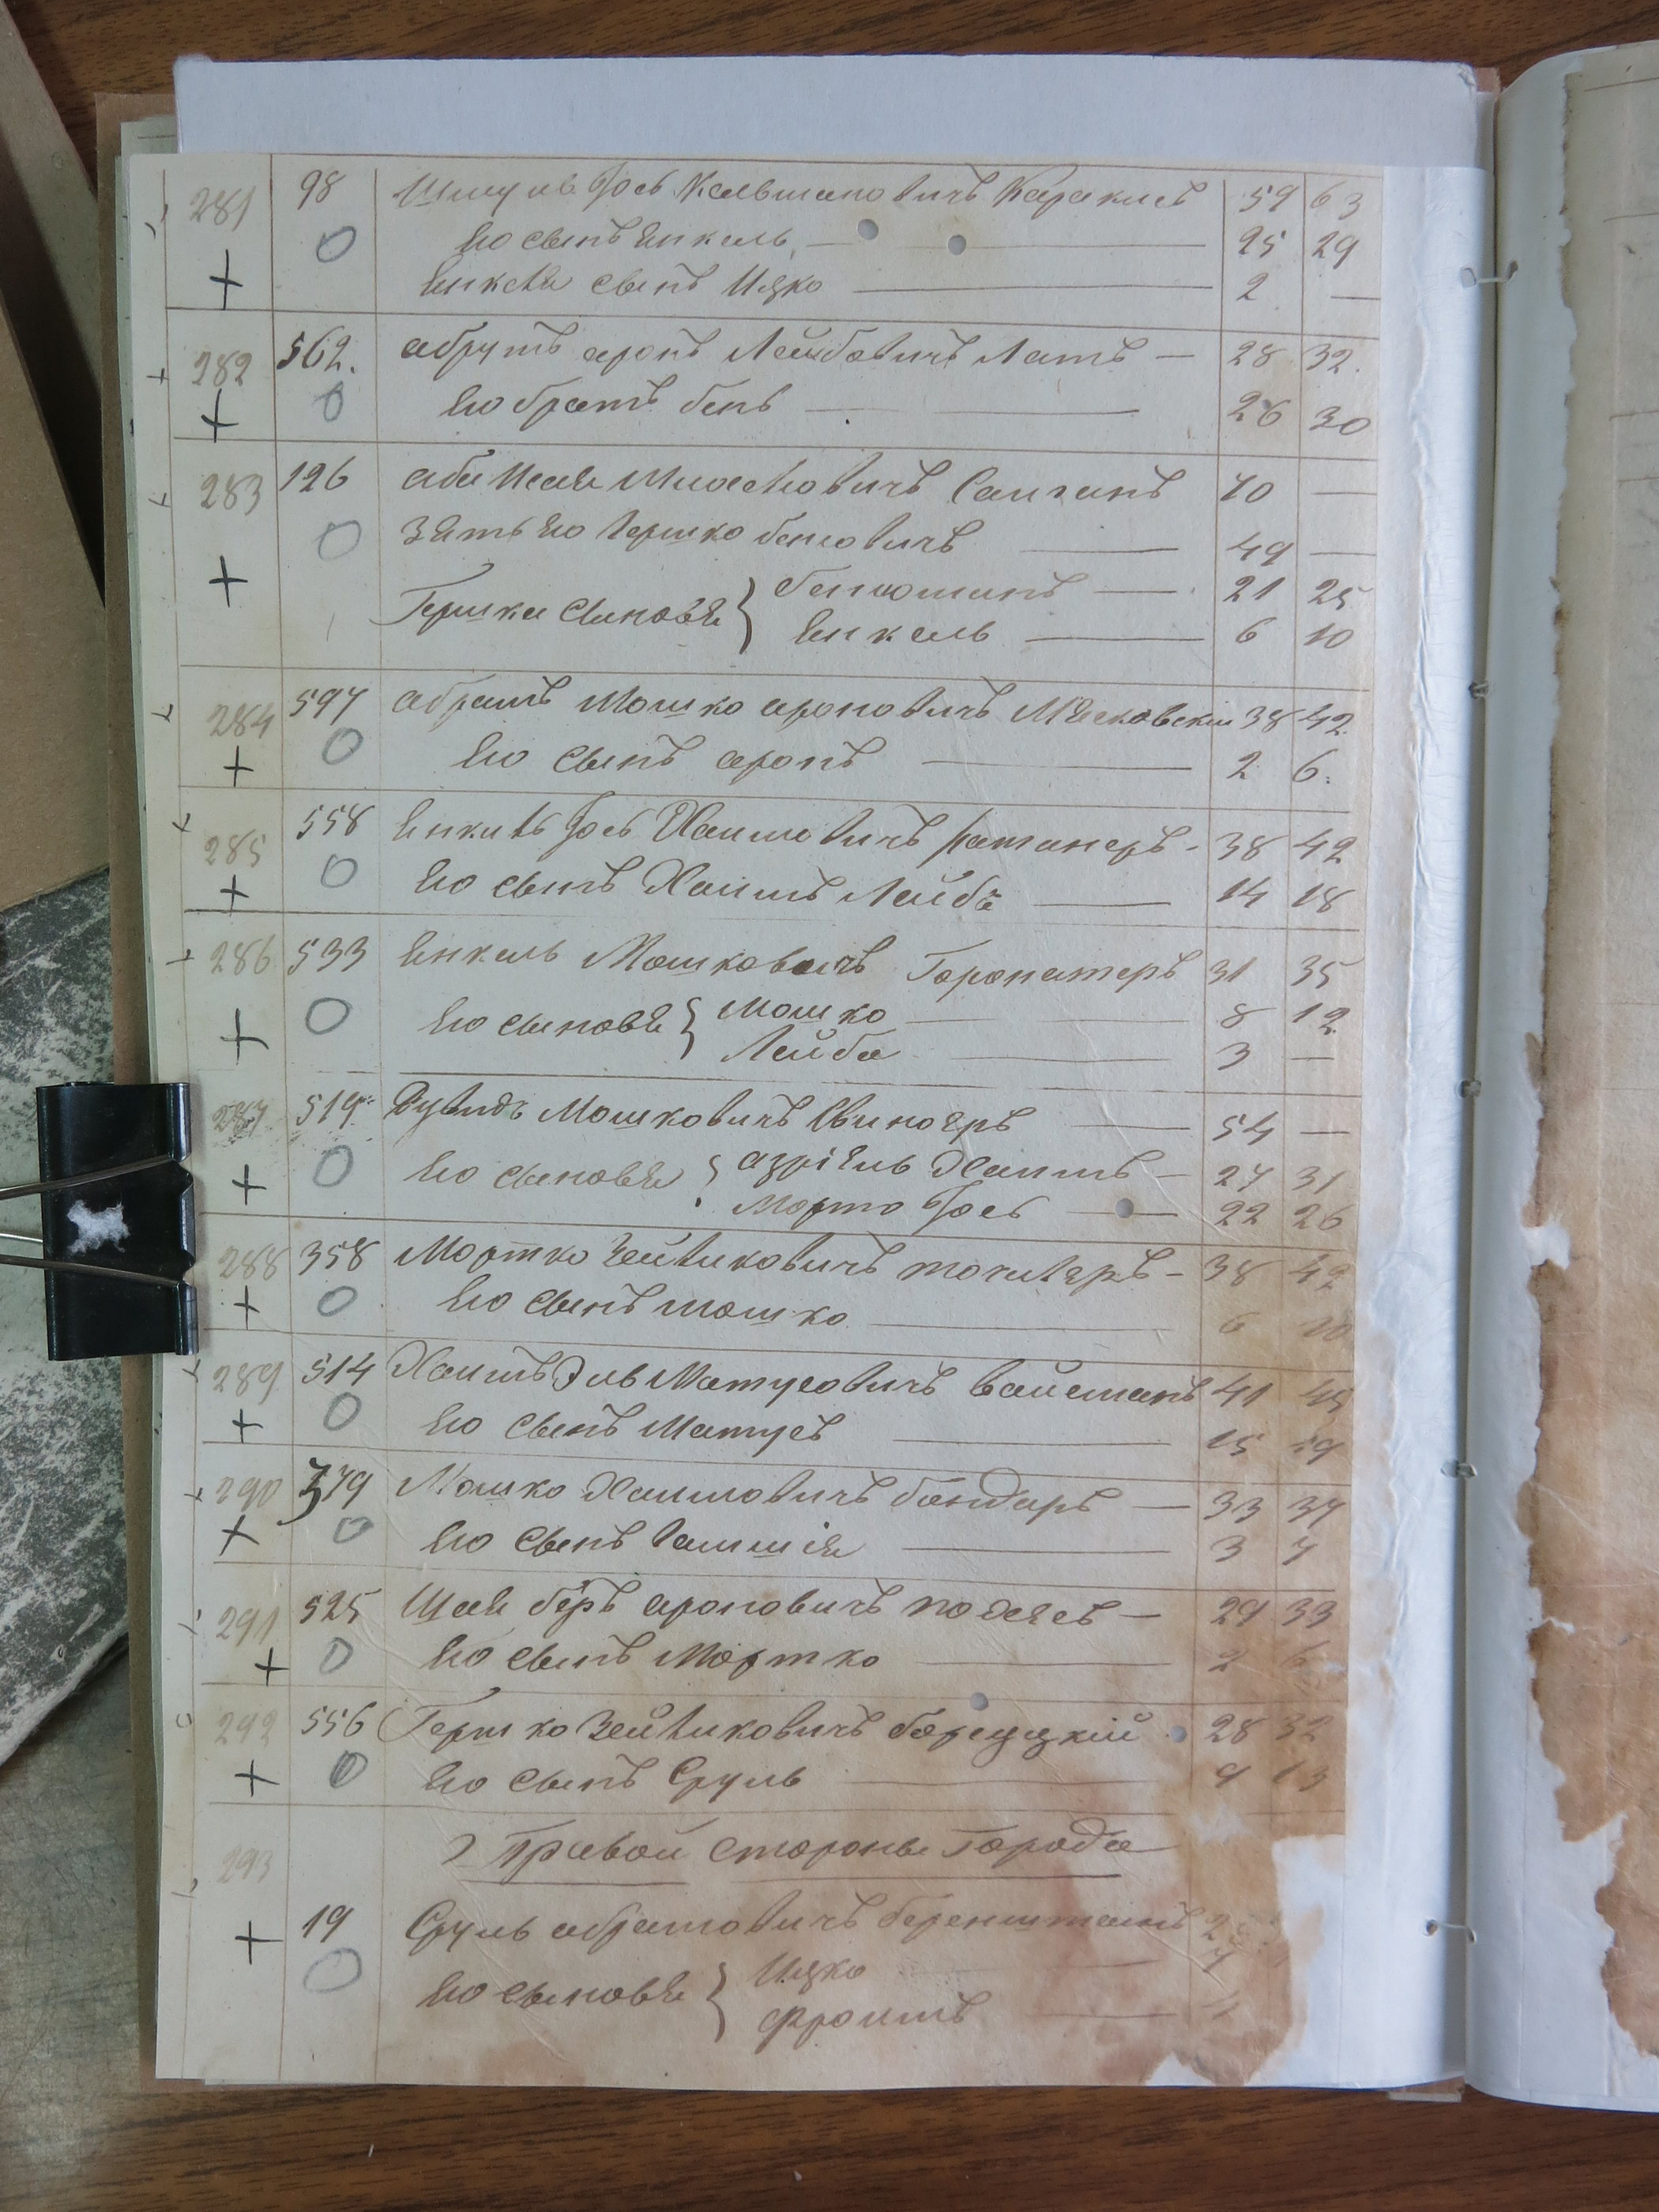 281 98 Шмуль Іось Кельмановичъ Каракисъ 59 63
Его сынъ Янкель 25 29
Янкеля сынъ Ицко 2 —
282 562. Абрумъ Аронъ Лейбовичъ — 28 32.
Его братъ Бень 26 30
283 126 Аба Исая 70 —
Зять его Гершко Беньовичъ 49 —
Гершка сыновья } Беньюминъ — 21 25
Янкель 6 10
284 597 Абрамъ Мошко Ароновичъ Мясковскій 38 42
Его сынъ Аронъ 2 6.
558
285 Янкель Іось Хаимовичъ - 38 42
Его сынъ Хаимъ Лейбъ 14 18
286 533 Янкель Мошковичъ 31 35
Его сыновья } Мошко 8 12
Лейба 3 —
287 519. Дувидъ Мошковичъ 54 —
Его сыновья } Азріель Хаимъ — 27 31
Мортко Іось 22 26
288 358 Мортко Зейликовичъ - 38 42
Его сынъ Мошко 6 10
289 514 Хаимъ Эль Матусовичъ Вайсманъ 41 45
Его сынъ Матусъ 15 19
290 379 Мошко Хаимовичъ Бондарь — 33 37
Его сынъ 3 7
291 525 Шая Беръ Ароновичъ — 29 33
Его сынъ Мортко 2 6
292 556 Гершко Зейликовичъ 28 32
Его сынъ Сруль 9 13
293 Правой стороны города
19 Сруль Абрамовичъ Беренштейнъ
Его сыновья } Ицко 7
Фроимъ